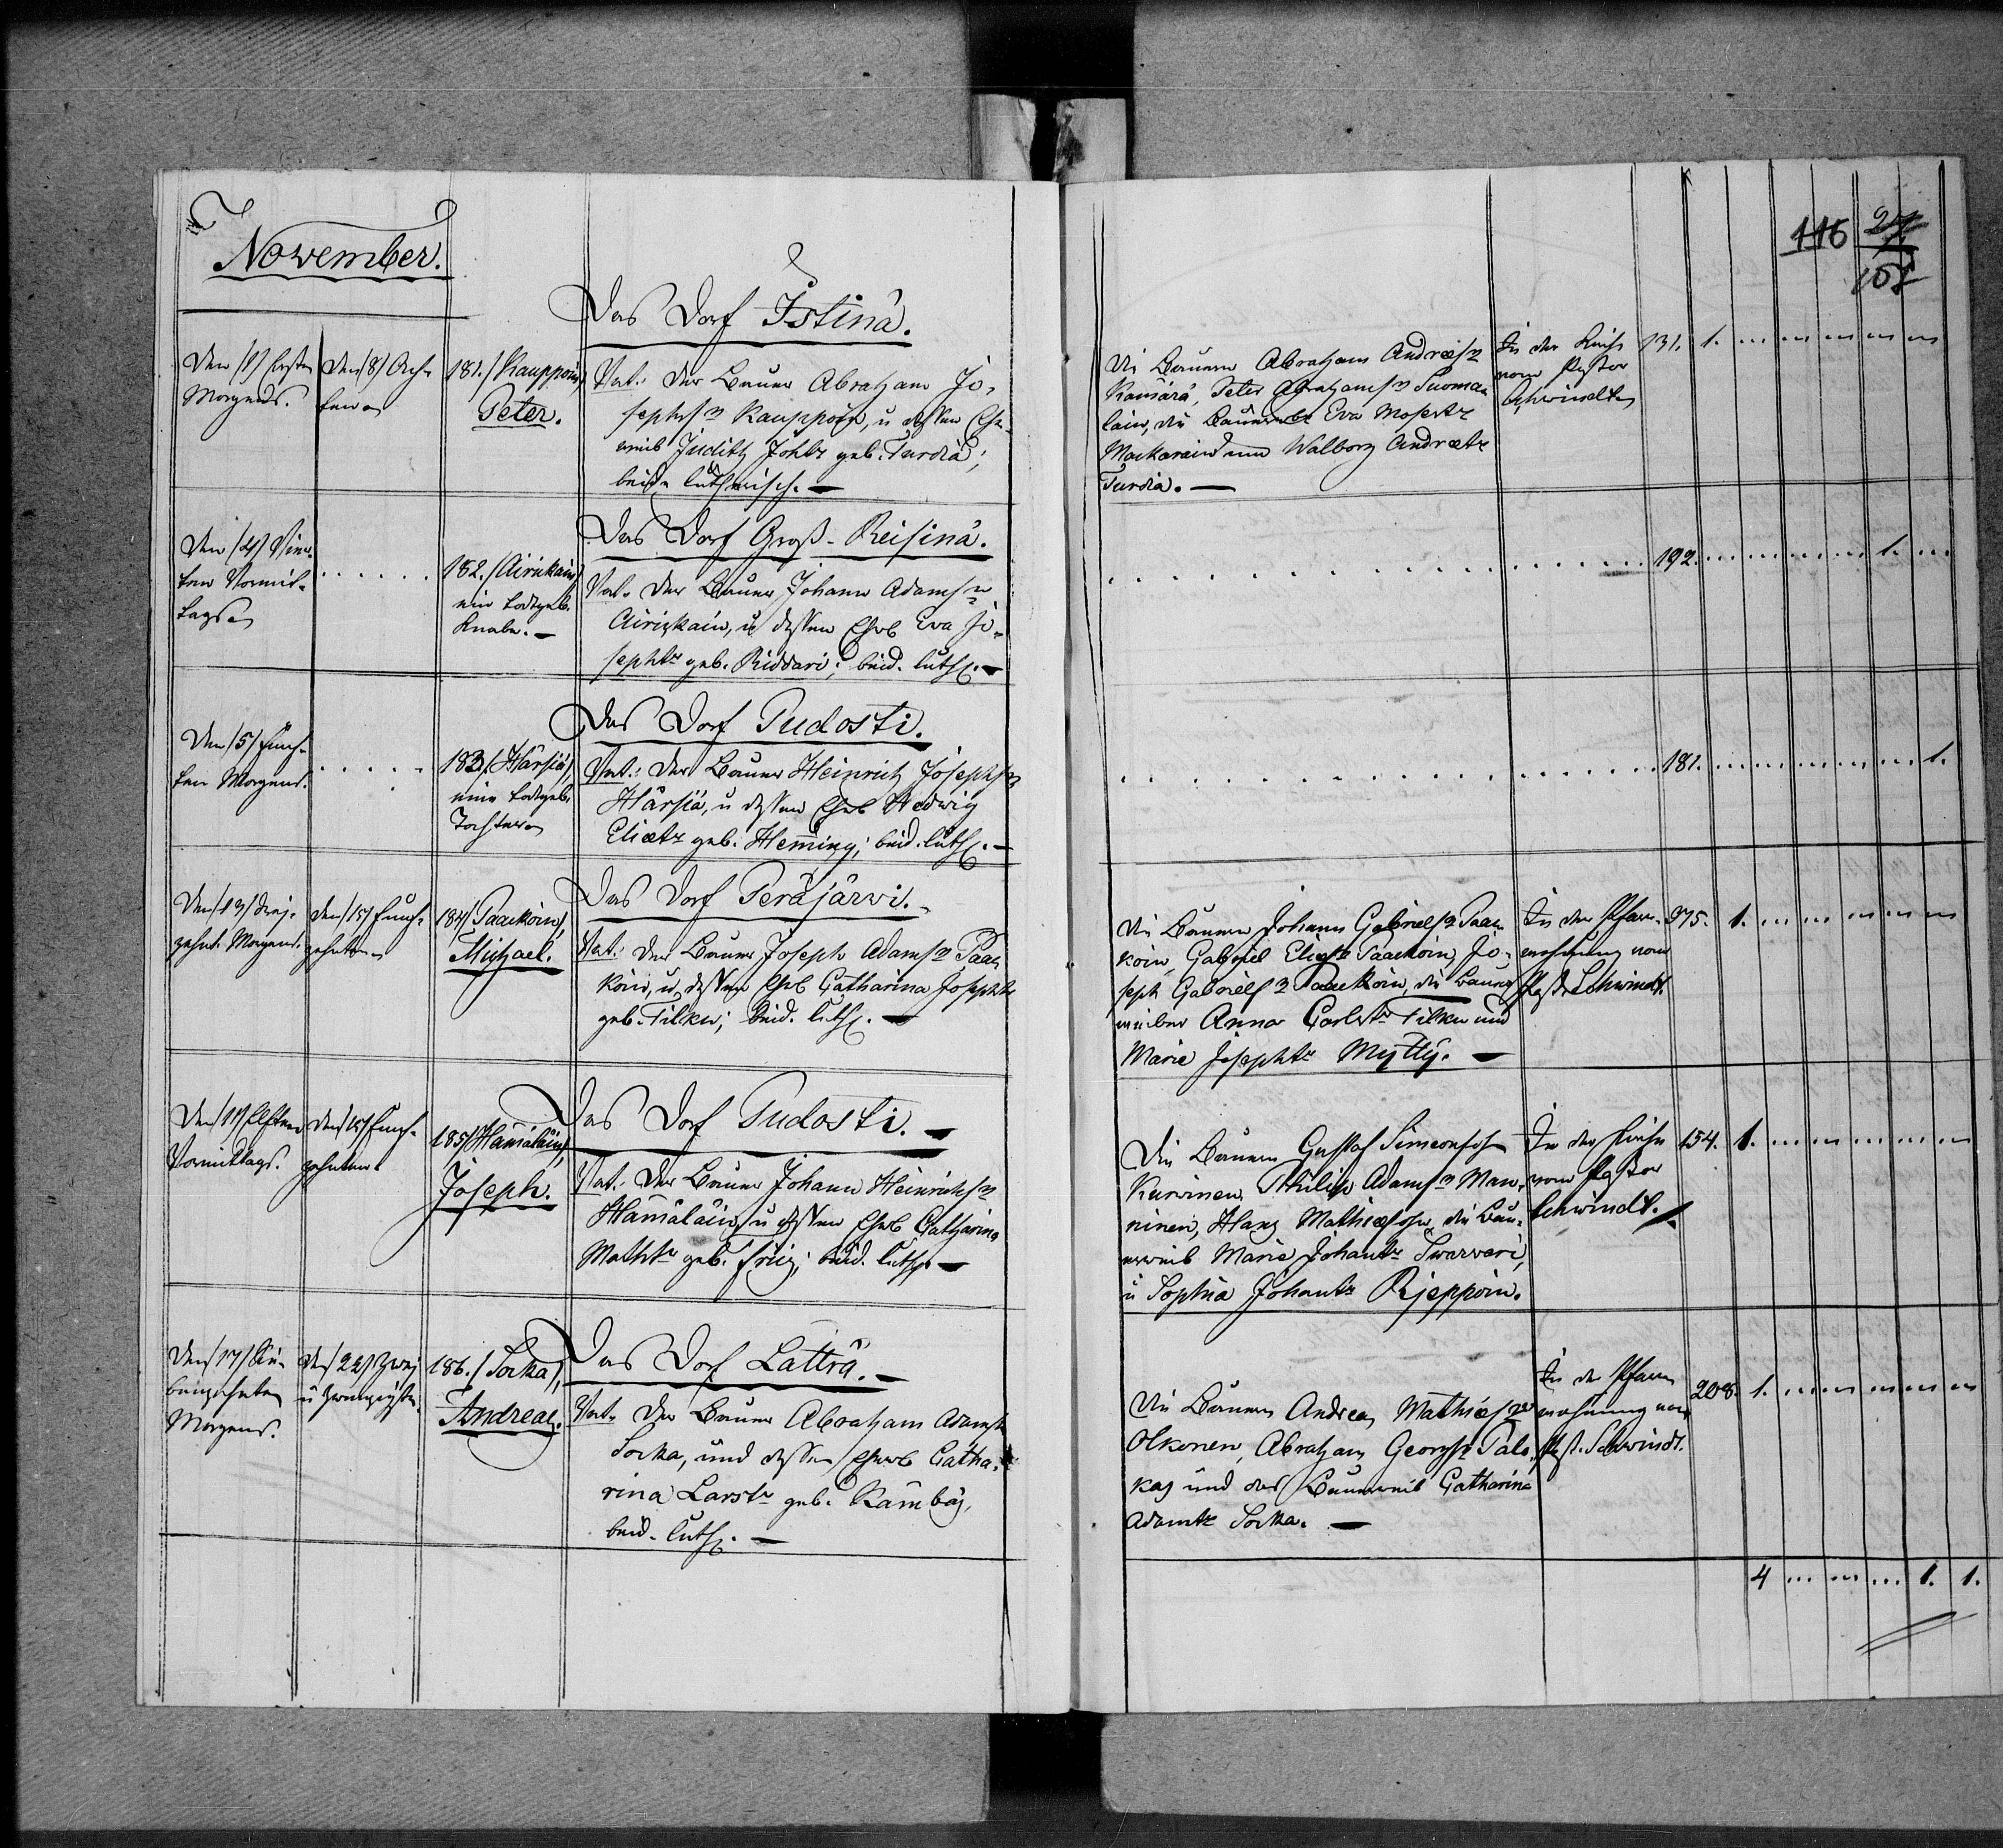 November.
Das Dorf Istinä.
Den /1/ Ersten
Morgens.
Den /8/ Ach-
ten
181. /Kauppoin/
Peter.
Vat.: Der Bauer Abraham Jo-
sephs⸗n Kauppoin, u dessen Ehe-
weib Judith Johtr geb. Turdia;
beide lutherisch. —
Die Bauern Abraham Andreis⸗n
Kamärä, Peter Abrahams⸗n Suoma-
lain, die Bauerweib Eva Mosestr
Mackarain und Walborg Andreetr
Turdia. —
In der Kirche
vom Pastor
Schwindt
131. 1.
Das Dorf Groß-Reisinä.
Den /4/ Vier-
ten Vormit-
tags
182. /Airikain/
ein todtgeb.
Knabe. —
Vat. Der Bauer Johann Adams⸗n
Airikain, u dessen Ehwb Eva Jo-
sephtr geb. Riddari; beid. luth. —
192. 1.
Das Dorf Pudosti.
Den /5/ Fünf-
ten Morgens.
183. /Härsiä/,
eine todtgeb.
Tochter
Vat.: Der Bauer Heinrich Josephs⸗n
Härsiä, u dessen Ehwb Hedwig
Eliætr geb. Hem̄ing; beid. luth. —
181. 1.
Das Dorf Peräjärwi. —
Den /13/ Drei-
zehnt. Morgens.
Den /15/ Fünf-
zehnten
184/ Paackoin/
Michael.
Vat.: Der Bauer Joseph Adams⸗n Paac
koin, u dessen Ehwb Catharina Josephtr
geb. Tilku; beid. luth. —
Die Bauern Johann Gabriels⸗n Paac
koin, Gabriel Elias⸗n Paackoin, Jo-
seph Gabriels⸗n Paackoin, die Bauer
weiber Anna Carlstr Tilku und
Marie Josephtr Myttÿ. —
In der Pfarr-
wohnung vom
Past. Schwindt.
275. 1.
Das Dorf Pudosti. —
Den /11/ Elften
Vormittags.
Den /15/ Fünf-
zehnten
185/ Hämäläin/,
Joseph.
Vat.: Der Bauer Johann Heinrichs⸗n
Hämäläin, u dessen Ehwb Catharina
Mathtr geb. ; beid. luth. —
Die Bauern Gustaf Simeonsohn
Kurwinen, Philip Adams⸗n Man-
ninen, Hans Mathiæsohn, die Bau-
erweib Marie Johantr Swarwari,
u Sophia Johantr Rjeppoin.
In der Kirche
vom Pastor
Schwindt.
154. 1.
Das Dorf Latträ. —
Den /17/ Sie-
benzehnten
Morgens.
Den /22/ Zwei
u zwanzigsten
186. / Sorka/,
Andreas.
Vat. Der Bauer Abraham Adams⸗n
Sorka, und dessen Ehwb Catha-
rina Larstr geb. ,
beid. luth. —
Die Bauern Andreas Mathiæs⸗n
Olkonen, Abraham Georgs⸗n Pala
kas und das Bauerweib Catharina
Adamtr Sorka. —
In der Pfarr
wohnung vom
Past. Schwindt.
208. 1.
4 1. 1.
116
107